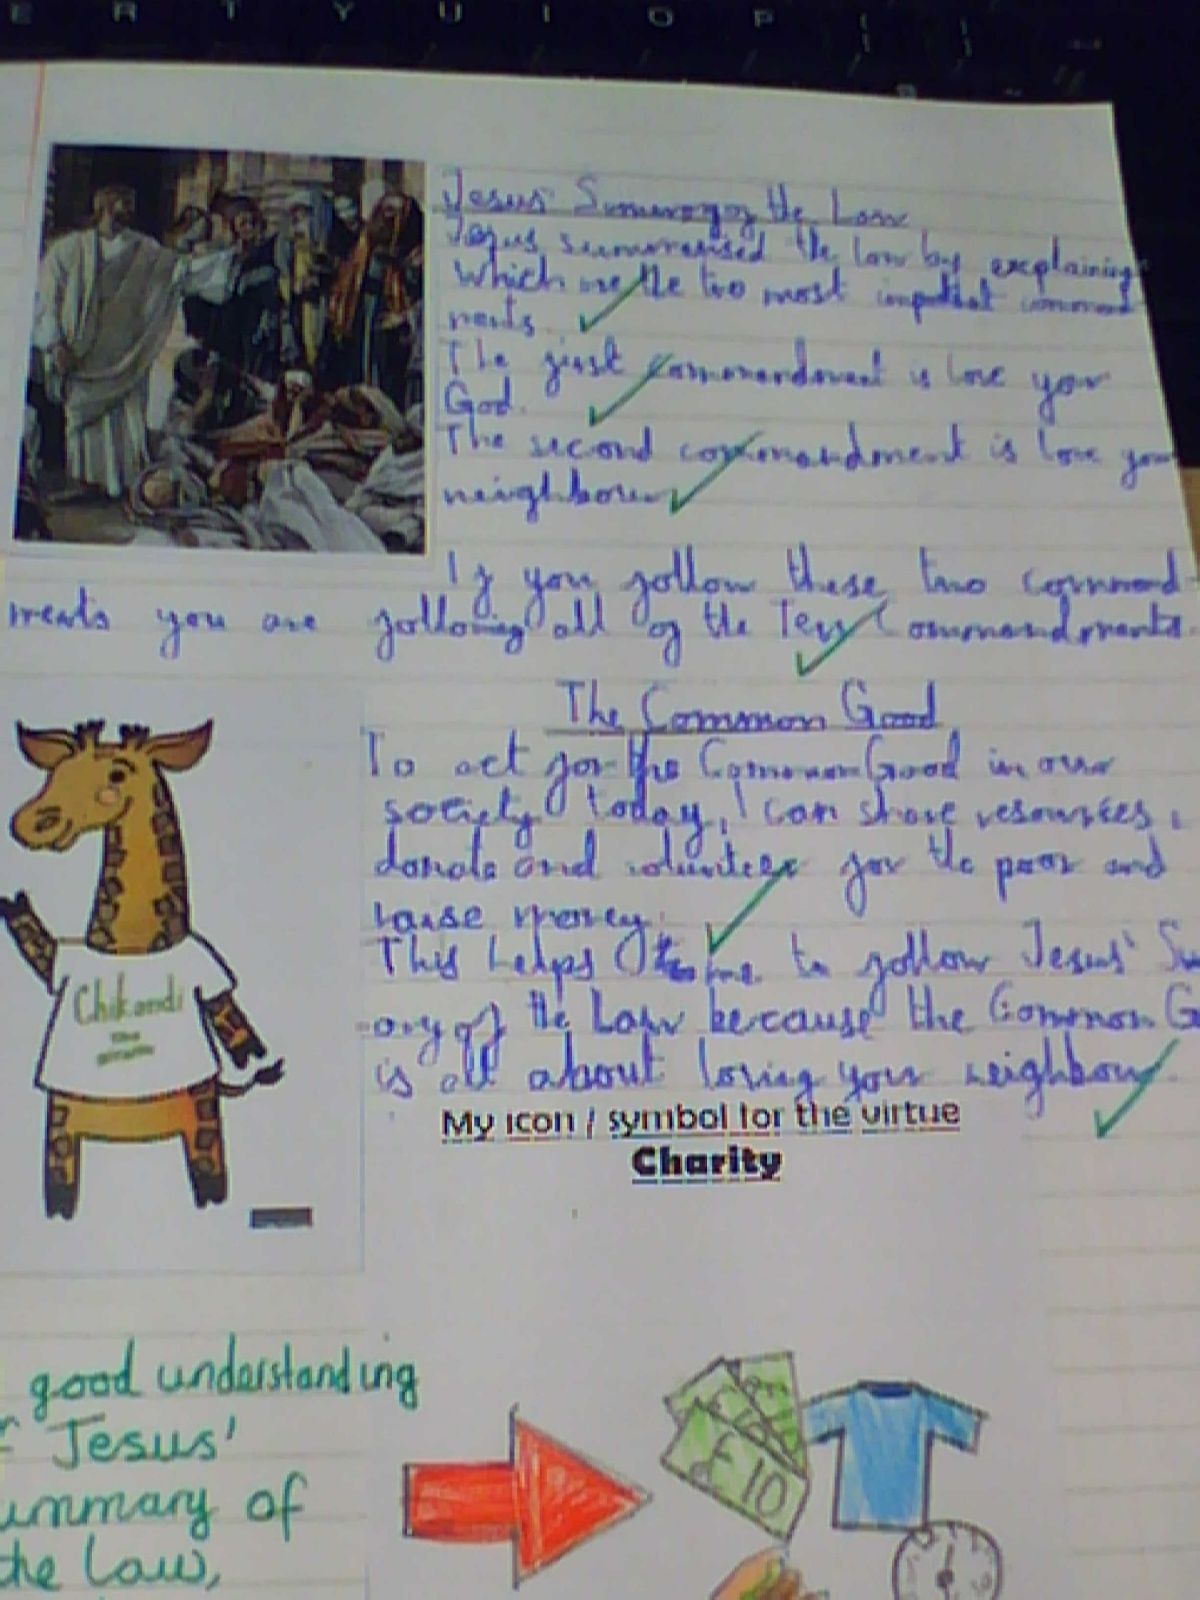 E R T Y U I O P
Jesus' Summary of the Law
Jesus summarised the law by explaining
which are the two most important command
ments.
The first commandment is love your
God.
The second commandment is love your
neighbour
If you follow these two command-
ments you are following all of the Ten Commandments.
The Common Good
To act for the Common Good in our
society today, I can share resources,
donate and volunteer for the poor and
raise money.
This helps me to follow Jesus' Su
ary of the Law because the Common G
is all about loving your neighbour
Chikondi
the
giraffe
My icon / symbol for the virtue
Charity
good understanding
Jesus'
ummary of
the Law,
£10